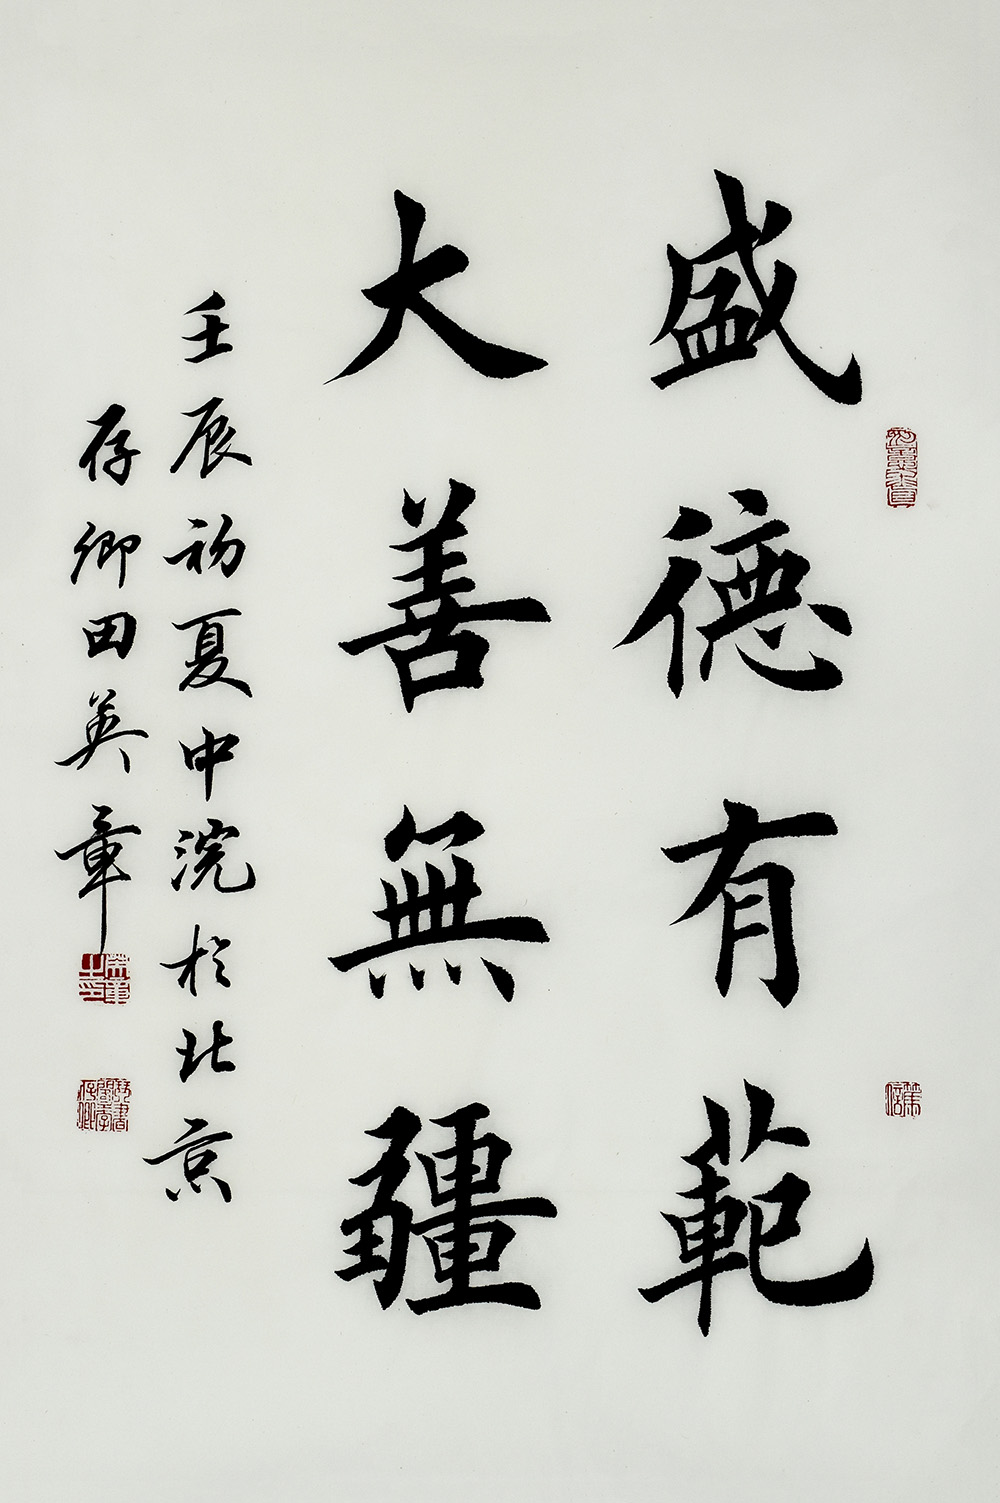 盛德有範
大善無疆
壬辰初夏中浣於北京
存卿田英章